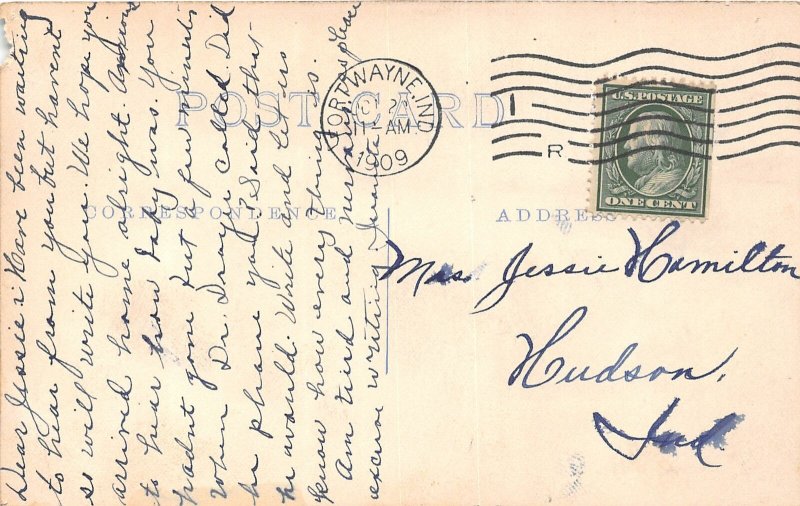 POST CARD
FORT WAYNE, IND
11-AM
1909
R
U.S. POSTAGE
ONE CENT
CORRESPONDENCE
ADDRESS
Dear Jessie: Have been waiting
to hear from you but havent
so will write you. We hope you
arrived home alright. Anxious
to hear how baby was. You
hadnt gone but a few minents
when Dr. called. Did
he phone you? Said that
he would. Write and let us
know how everything is.
Am tired and nervous so please
excuse writing.
Mrs. Jessie Hamilton
Hudson,
Ind